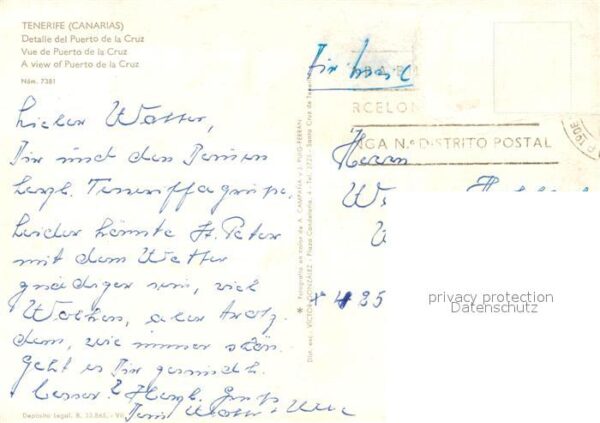 TENERIFE (CANARIAS)
Detalle del Puerto de la Cruz
Vue de Puerto de la Cruz
A view of Puerto de la Cruz
Núm. 7381
Lieber Walter,
Dir und den Deinen
herzl. Teneriffagrüße.
Leider könnte St. Peter
mit dem Wetter
gnädiger sein, viel
Wolken, aber trotz-
dem, wie immer schön.
Geht es Dir
besser? Herzl. Gruß
Depósito Legal. B.
Fotografía en color de A. CAMPAÑÁ y J. PUIG-FERRÁN
Dist. exc. VICTOR GONZALEZ - Plaza Candelaria, 4 - Tel. - Santa Cruz de Tenerife
Air mail
RCELON
NGA N.º DISTRITO POSTAL
Herrn
privacy protection
Datenschutz